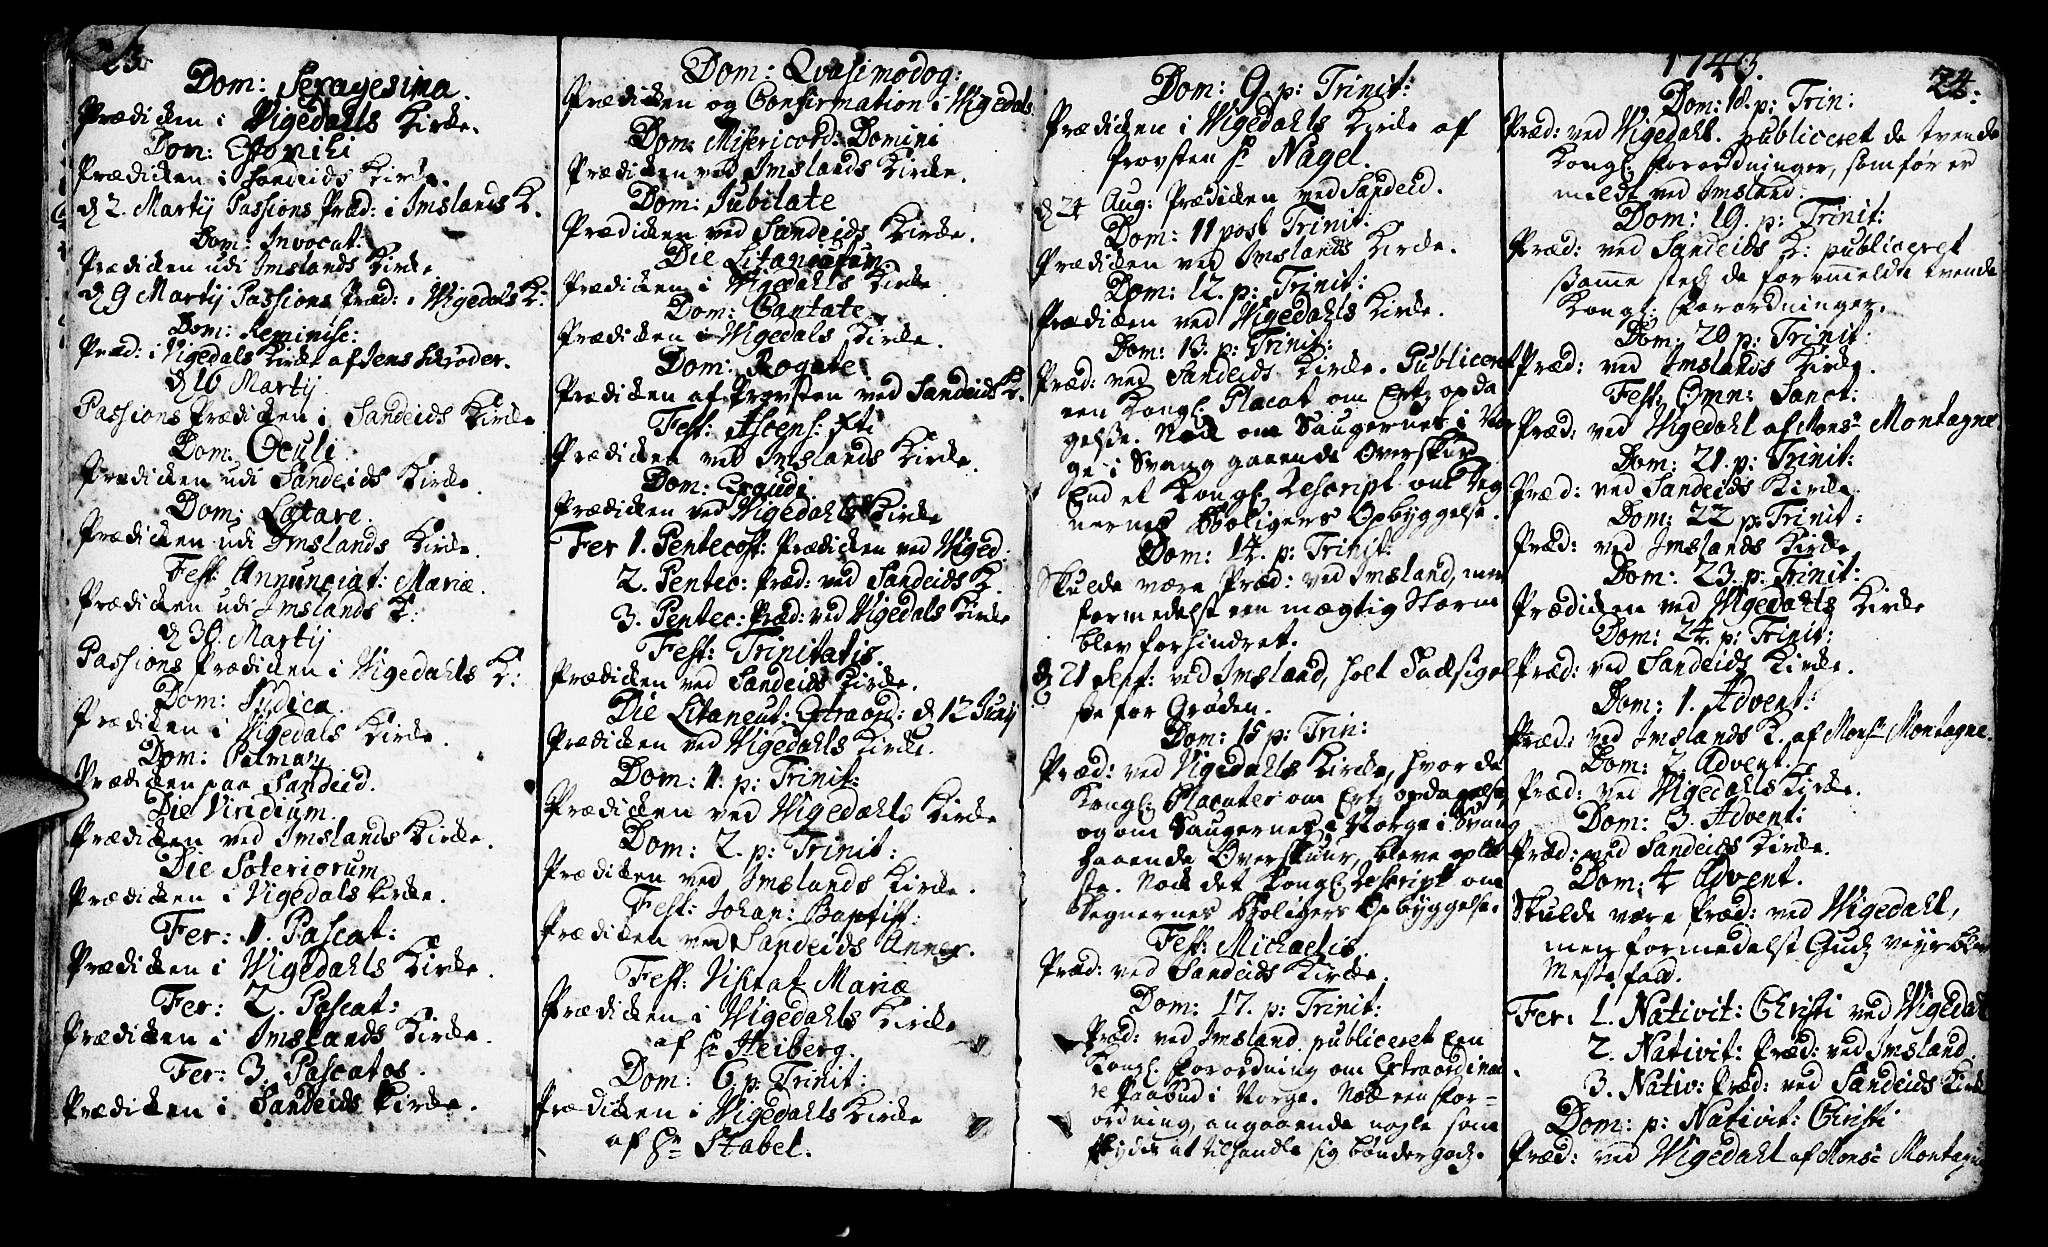 23.
Dom: Sexagesima.
Prædicken i Vigedahls Kirke.
Dom: Estomihi
Prædicken i Sandeids Kirke.
d 2. Martij Passions Præd: i Imslands K.
Dom: Invocat:
Prædicken udi Imslands Kirke
d 9 Martij Passions Præd: i Vigedals K:
Dom: Reminisc:
Præd: i Vigedals Kirke af Jens Schrøder.
d 16 Martij
Passions Prædicken i Sandeids Kirke
Dom: Oculi
Prædicken udi Sandeids Kirke.
Dom: Lætare.
Prædicken udi Imslands Kirke.
Fest: Annunciat: Mariæ.
Prædicken udi Imslands K:
d 30. Martij
Passions Prædicken i Vigedahls K:
Dom: Judica.
Prædicken i Vigedals Kirke.
Dom: Palmar
Prædicken paa Sandeid.
Die Viridium.
Prædicken ved Imslands Kirke.
Die Soteriorum
Prædicken i Vigedals Kirke.
Fer: 1. Pascat:
Prædicken i Vigedahls Kirke.
Fer: 2. Pascat:
Prædicken i Imslands Kirke.
Fer: 3. Pascatos.
Prædicken i Sandeids Kirke.
Dom: Qvasimodog:
Prædicken og Confirmation i Vigedals
Dom: Misericord: Domini
Prædicken ved Imslands Kirke.
Dom: Jubilate
Prædicken ved Sandeids Kirke.
Die Litaneutum
Prædicken i Vigedahls Kirke
Dom: Cantate
Prædicken i Vigedals Kirke.
Dom: Rogate
Prædicken af Provsten ved Sandeids K.
Fest: Ascens: Xti
Prædicken ved Imslands Kirke.
Dom: Exaudi
Prædicken ved Vigedahls Kirke
Fer 1. Pentecost: Prædicken ved Viged:
2. Pentec: Præd: ved Sandeids K.
3. Pentec: Præd: ved Vigedals Kirke
Fest: Trinitatis.
Prædicken ved Sandeids Kirke.
Die Litaneut: Extraord: d 12 Junij
Prædicken ved Vigedahls Kirke.
Dom: 1. p: Trinit:
Prædicken ved Vigedahls Kirke
Dom: 2. p: Trinit:
Prædicken ved Imslands Kirke.
Fest: Johan: Baptist:
Prædicken ved Sandeids Annex.
Fest: Visitat Mariæ
Prædicken i Vigedahls Kirke
af Hr Heiberg.
Dom: 6 p: Trinit:
Prædicken i Vigedahls Kirke
af Hr Stabel.
Dom: 9. p: Trinit:
Prædicken i Vigedahls Kirke af
Provsten Hr Nagel.
d 24 Aug: Prædicken ved Sandeid.
Dom: 11 post Trinit:
Prædicken ved Imslands Kirke.
Dom: 12. p: Trinit:
Prædicken ved Vigedahls Kirke.
Dom: 13. p: Trinit:
Præd: ved Sandeids Kirke. Publiceret
een Kongl: Placat om Ertz opda
gelse. Nock om Saugernes i Nor
ge i Svang gaaende Overskur
End et Kongl: Rescript om Veg
nernes Boligers Opbyggelse.
Dom: 14. p: Trinit:
Skulde være Præd: ved Imsland, men
formedelst een mægtig Storm
blev forhindret.
d 21 Sept: ved Imsland, holt Tacksigel
se for Grøden.
Dom: 15 p: Trin:
Præd: ved Vigedahls Kirke, hvor de
Kongl: Placater om Ertz opdagelse,
og om Saugernes i Norge i Svang
gaaende Overskuur, bleve oplæ
ste. Nock det Kongl: Rescript om
Vegnernes Boligers Opbyggelse.
Fest: Michaelis.
Præd: ved Sandeids Kirke.
Dom: 17. p: Trinit:
Præd: ved Imsland publiceret Een
Kongl: Forordning om Extraordinai
re Paabud i Norge. Nock een For-
ordning, angaaende nogle som
at tilhandle sig bønder godz.
1746.
24.
Dom: 18. p: Trin:
Præd: ved Vigedahl. publiceret de tvende
Kongl: Forordninger, som før er
meldt ved Imsland.
Dom: 19. p: Trinit:
Præd: ved Sandeids K: publiceret
samme sted de formeldte tvende
Kongl: Forordninger.
Dom: 20 p: Trinit:
Præd: ved Imslands Kirke.
Fest: Omn: Sanct:
Præd: ved Vigedahl af Monsr Montagne
Dom: 21. p: Trinit:
Præd: ved Sandeids Kirke.
Dom: 22 p: Trinit:
Præd: ved Imslands Kirke
Dom: 23. p: Trinit:
Prædicken ved Vigedahls Kirke
Dom: 24. p: Trinit:
Præd: ved Sandeids Kirke.
Dom: 1. Advent:
Præd: ved Imslands K. af Monsr Montagne.
Dom: 2 Advent.
Præd: ved Vigedahls Kirke.
Dom: 3. Advent:
Præd: ved Sandeids Kirke.
Dom: 4 Advent.
Skulde være Præd: ved Vigedahl,
men formedelst Gudz veyr blev
Messefald.
Fer: 1. Nativit: Christi ved Vigedal
2. Nativit: Præd: ved Imsland
3. Nativ: Præd: ved Sandeids Kirke
Dom: p: Nativit: Christi
Præd: ved Vigedahl af Monsr Montagne